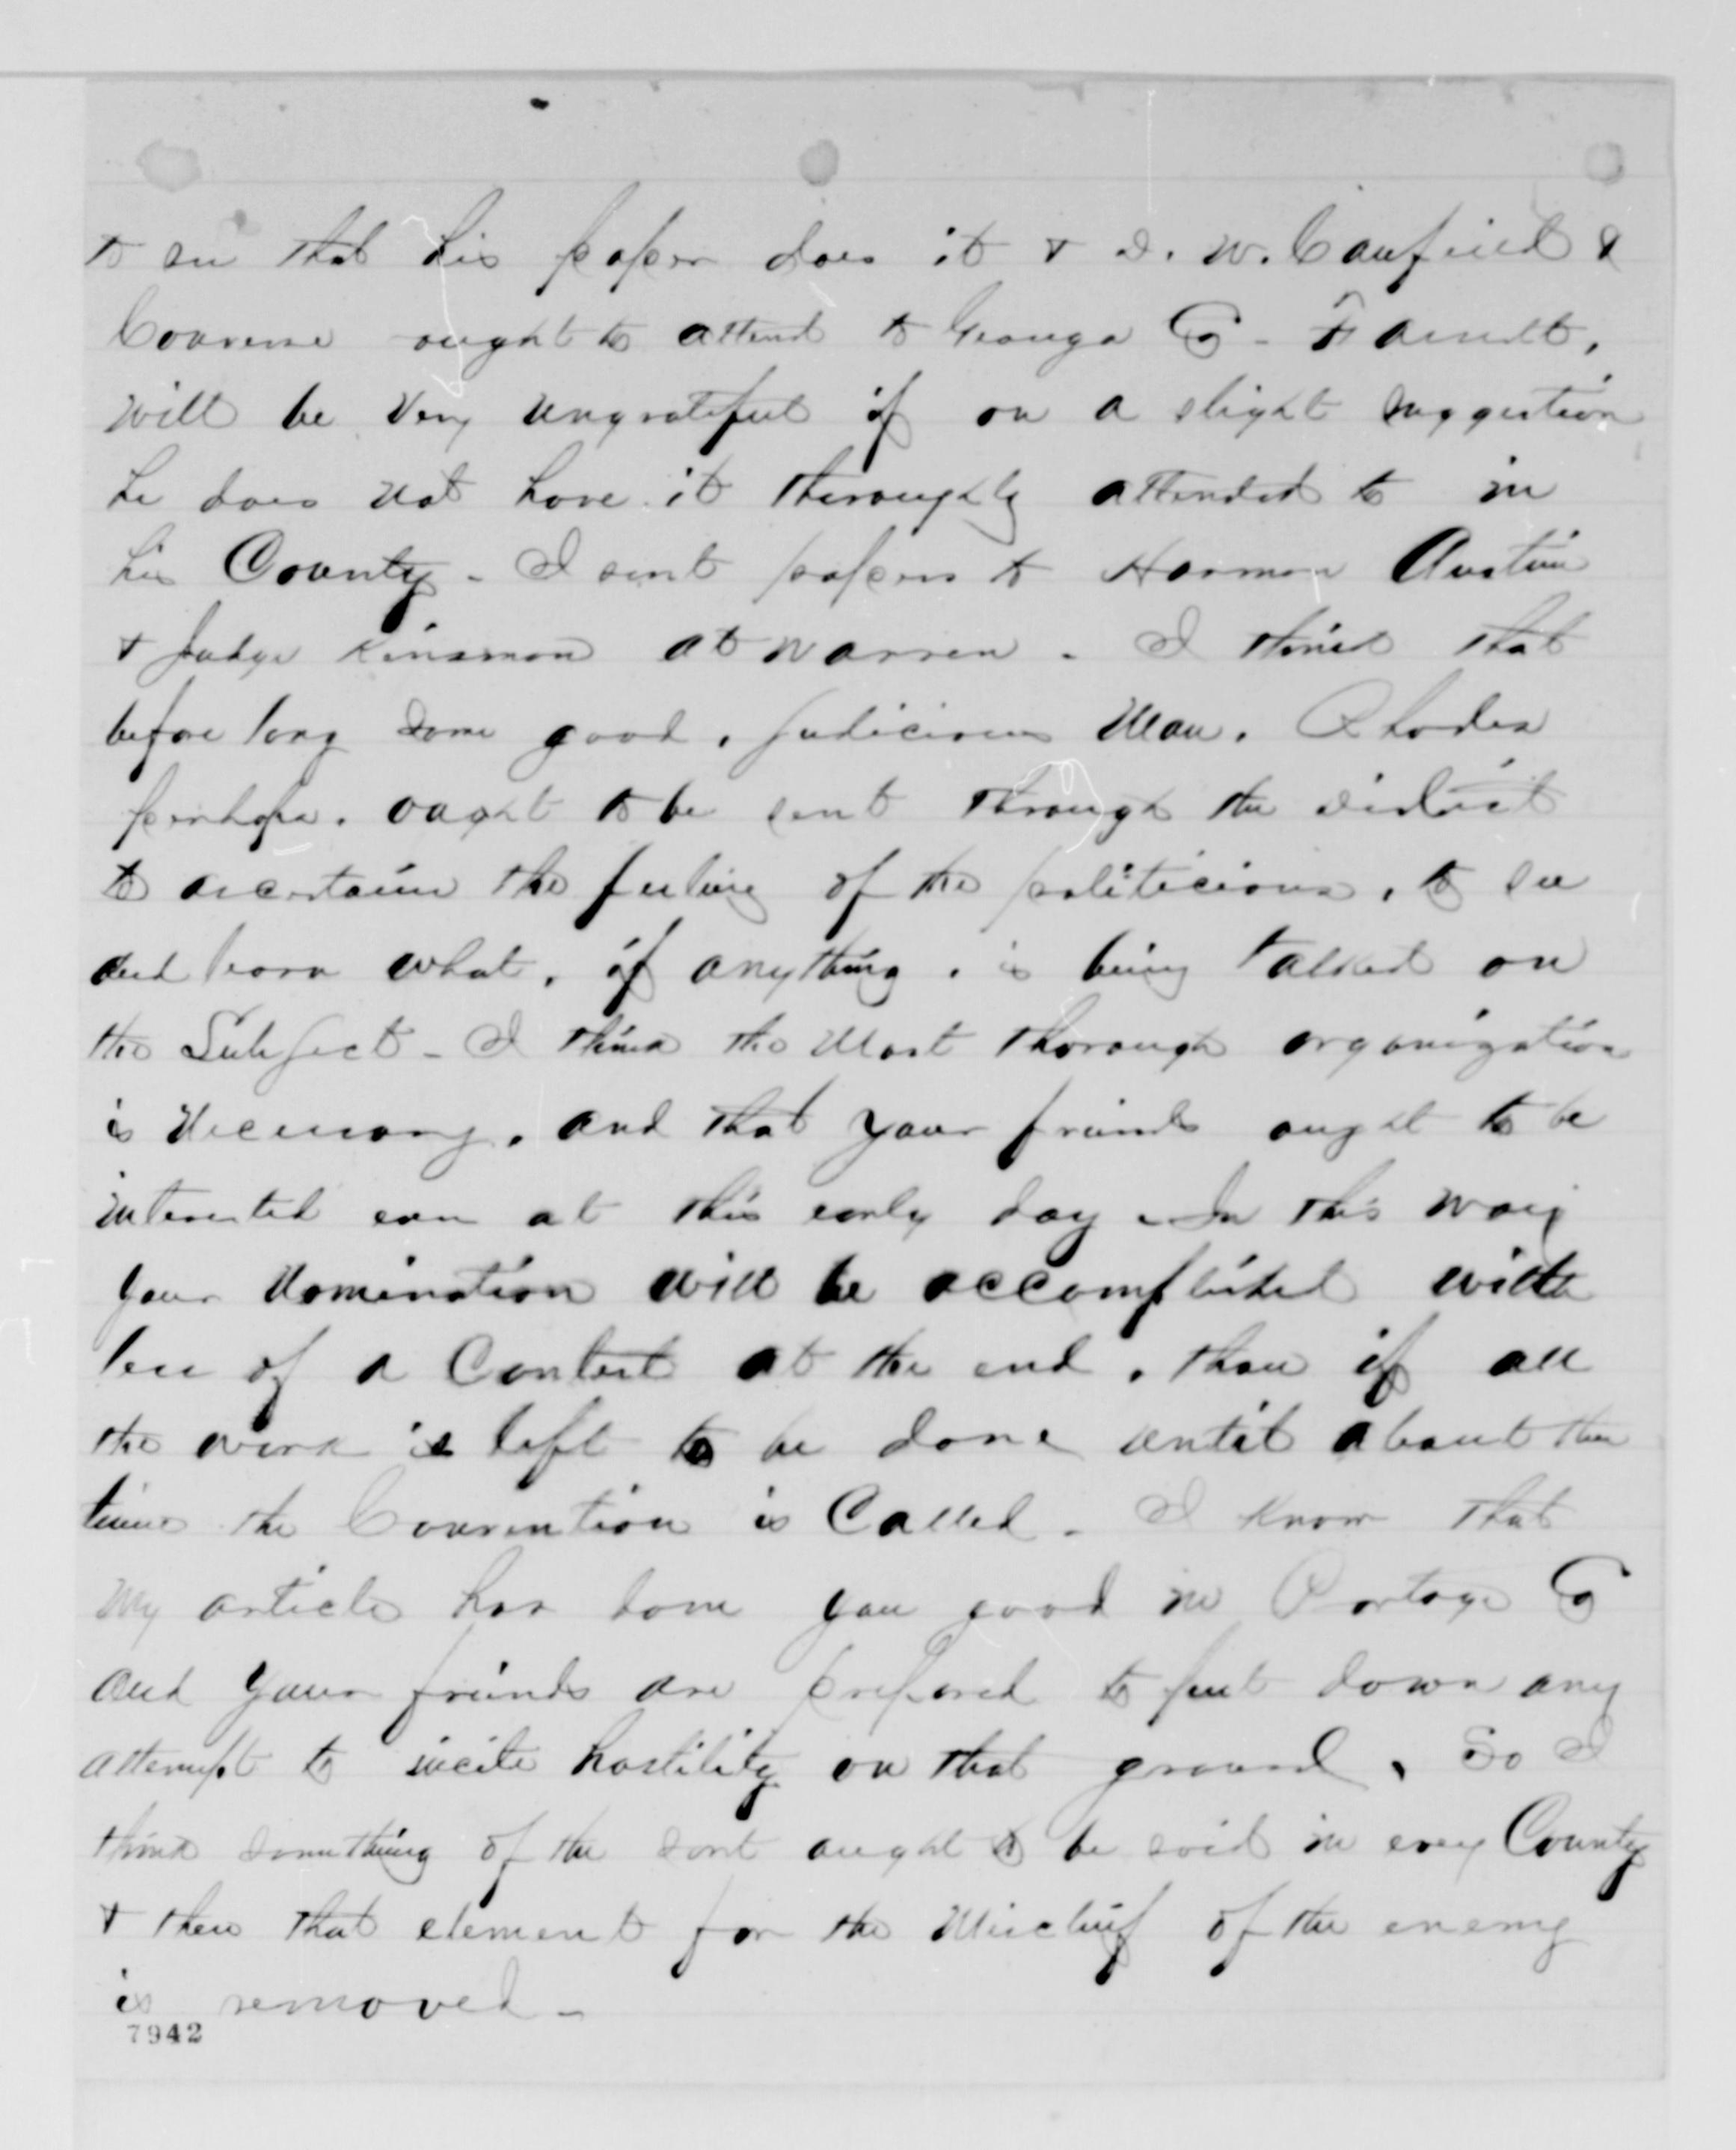 to see that his paper does it & D. W. Canfield &
Converse ought to attend to Geauga Co -
will be very ungrateful if on a slight suggestion
he does not have it thoroughly attended to in
his County - I sent papers to Harmon Austin
& Judge Kinsman at Warren - I think that
before long some good, judicious man, Rhodes
perhaps, ought to be sent through the district
to ascertain the feeling of the politicians, to see
and learn what, if anything, is being talked on
the Subject - I think the most thorough organization
is necessary, and that your friends ought to be
interested even at this early day - In this way
your nomination will be accomplished with
less of a Contest at the end, than if all
the work is left to be done until about the
time the Convention is Called - I know that
my article has done you good in Portage Co
and your friends are prepared to put down any
attempt to incite hostility on that ground, So I
think something of the sort ought to be said in every County
& then that element for the mischief of the enemy
is removed -
7942